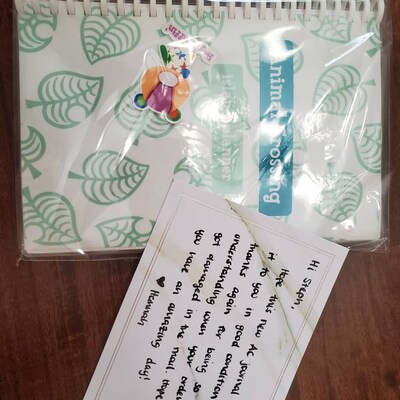 Animal Crossing
Hi Steph!
Hope this new AC journal
it to you in good condition
thanks again for being so
understanding when your order
got damaged in the mail. Hope
you have an amazing day!
♥ Hannah